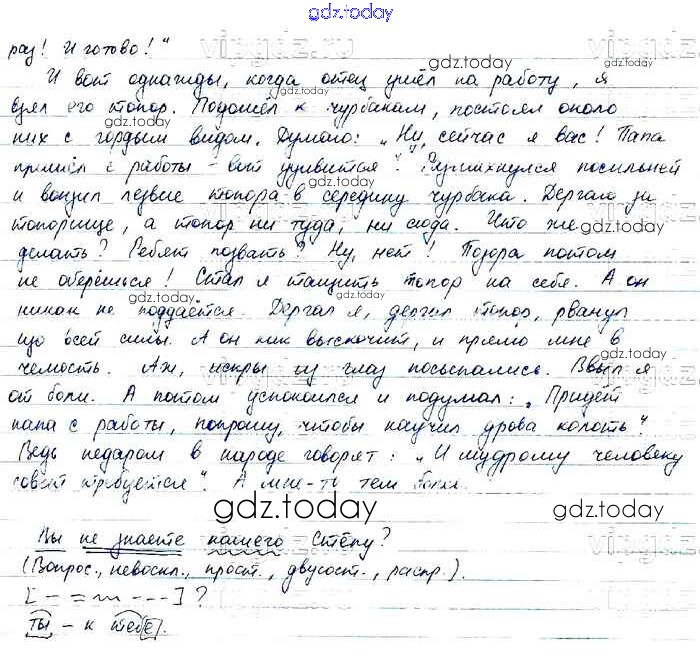 gdz.today
раз! И готово!"
И вот однажды, когда отец ушёл на работу, я
взял его топор. Подошёл к чурбакам, постоял около
них с гордым видом. Думаю: „Ну, сейчас я вас! Папа
пришёл с работы - вот удивится?" Размахнулся посильней
и вонзил лезвие топора в середину чурбака. Дергаю за
топорище, а топор ни туда, ни сюда. Что же
делать? Ребят позвать? Ну, нет! Позора потом
не оберёшься! Стал я тащить топор на себя. А он
никак не поддаётся. Дергал я, дергал топор, рванул
що всей силы. А он как выскочит, и прямо мне в
челюсть. Аж, искры из глаз посыпались. Взвыл я
от боли. А потом успокоился и подумал: „Придёт
папа с работы, попрошу, чтобы научил дрова колоть".
Ведь недаром в народе говорят: „И мудрому человеку
совет требуется". А мне-то тем более.
Вы не знаете нашего Стёпу?
(Вопрос., невоскл., прост., двусост., распр.).
[- = ~ - - -]?
ты - к тебе.